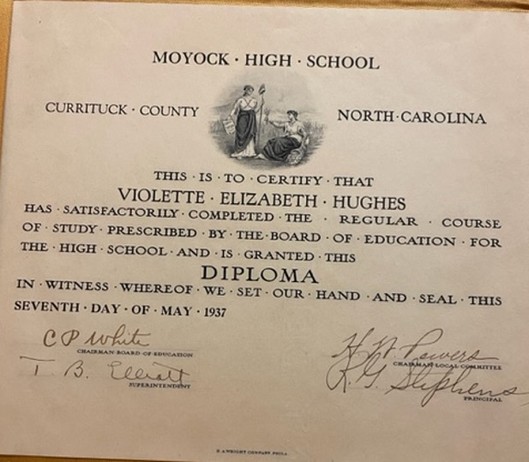 MOYOCK · HIGH · SCHOOL
CURRITUCK · COUNTY NORTH · CAROLINA
THIS · IS · TO · CERTIFY · THAT
VIOLETTE · ELIZABETH · HUGHES
HAS · SATISFACTORILY · COMPLETED · THE · REGULAR · COURSE
OF · STUDY · PRESCRIBED · BY · THE · BOARD · OF · EDUCATION · FOR
THE · HIGH · SCHOOL · AND · IS · GRANTED · THIS
DIPLOMA
IN · WITNESS · WHEREOF · WE · SET · OUR · HAND · AND · SEAL · THIS
SEVENTH · DAY · OF · MAY · 1937
C P White
CHAIRMAN BOARD OF EDUCATION
T. B. Elliott
SUPERINTENDENT
Powers
CHAIRMAN LOCAL COMMITTEE
R. G. Stephens
PRINCIPAL
WRIGHT COMPANY, PHILA.